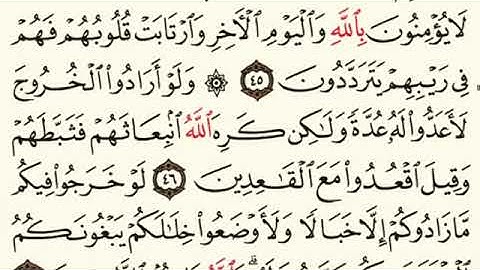 لَا يُؤْمِنُونَ بِٱللَّهِ وَٱلْيَوْمِ ٱلْأَخِرِ وَٱرْتَابَتْ قُلُوبُهُمْ فَهُمْ
فِى رَيْبِهِمْ يَتَرَدَّدُونَ ٤٥ ۞ وَلَوْ أَرَادُوا۟ ٱلْخُرُوجَ
لَأَعَدُّوا۟ لَهُۥ عُدَّةً وَلَٰكِن كَرِهَ ٱللَّهُ ٱنۢبِعَاثَهُمْ فَثَبَّطَهُمْ
وَقِيلَ ٱقْعُدُوا۟ مَعَ ٱلْقَٰعِدِينَ ٤٦ لَوْ خَرَجُوا۟ فِيكُم
مَّا زَادُوكُمْ إِلَّا خَبَالًا وَلَأَوْضَعُوا۟ خِلَٰلَكُمْ يَبْغُونَكُمُ